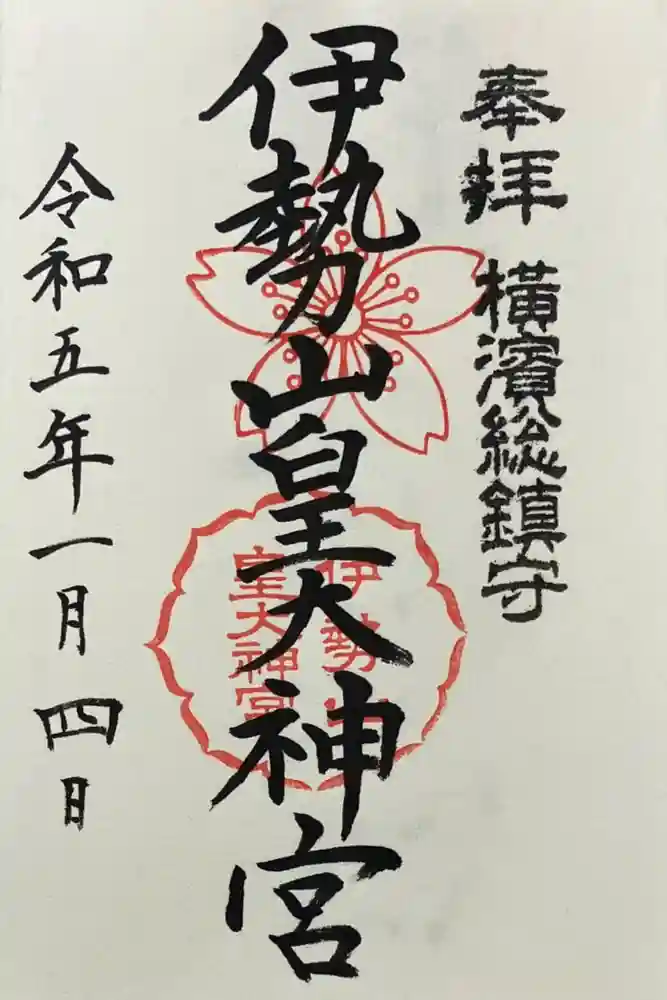 奉拝 横濱総鎮守
伊勢山皇大神宮
伊勢山
皇大神宮
令和五年一月四日